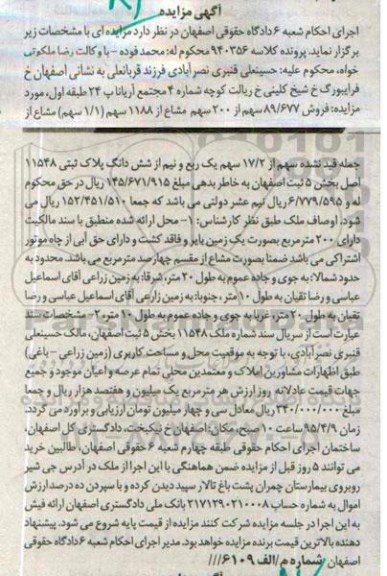 آگهی مزایده
اجرای احکام شعبه ۶ دادگاه حقوقی اصفهان در نظر دارد مزایده ای با مشخصات زیر
برگزار نماید. پرونده کلاسه ۹۴۰۳۵۶ محکوم له: محمد فوده - با وکالت رضا ملکوتی
خواه، محکوم علیه: حسینعلی قنبری نصر آبادی فرزند قربانعلی به نشانی اصفهان خ
فرایبورگ خ شیخ کلینی خ ریالت کوچه شماره ۴ مجتمع آریانا پ ۲۴ طبقه اول، مورد
مزایده: فروش ۸۹/۶۷۷ سهم از ۲۰۰ سهم مشاع از ۱۱۸۸ سهم (۱/۱ سهم) مشاع از
جمله قید نشده سهم از ۱۷/۲ سهم یک ربع و نیم از شش دانگ پلاک ثبتی ۱۱۵۴۸
اصل بخش ۵ ثبت اصفهان به خاطر بدهی مبلغ ۱۴۵/۶۷۱/۹۱۵ ریال در حق محکوم
له و ۶/۷۷۹/۵۹۵ ریال نیم عشر دولتی می باشد که جمعا ۱۵۲/۴۵۱/۵۱۰ ریال می
شود. اوصاف ملک طبق نظر کارشناس: ۱- محل ارائه شده منطبق با سند مالکیت
دارای ۲۰۰ متر مربع بصورت یک زمین بایر و فاقد کشت و دارای حق آبی از چاه موتور
اشتراکی می باشد ضمنا بصورت مشاع از مقسم چهار صد متر مربع می باشد. محدود به
حدود شمالا: به جوی و جاده عموم به طول ۲۰ متر، شرقا: به زمین زراعی آقای اسماعیل
عباسی و رضا تقیان به طول ۱۰ متر، جنوبا: به زمین زارعی آقای اسماعیل عباسی و رضا
تقیان به طول ۲۰ متر، غربا به جوی و جاده عموم به طول ۱۰ متر ۲- مشخصات سند
عبارت است از سریال سند شماره ملک ۱۱۵۴۸ بخش ۵ ثبت اصفهان، مالک حسینعلی
قنبری نصر آبادی، با توجه به موقعیت محل و مساحت کاربری (زمین زراعی - باغی)
طبق اظهارات مشاورین املاک و معتمدین محلی تمام عرصه و اعیان موجود و جمیع
جهات قیمت عادلانه روز ارزش هر متر مربع یک میلیون و هفتصد هزار ریال و جمعا
مبلغ ۳۴۰/۰۰۰/۰۰۰ ریال معادل سی و چهار میلیون تومان ارزیابی و برآورد می گردد.
زمان ۹۵/۴/۹ ساعت ۱۰ صبح، مکان: اصفهان خ نیکبخت، دادگستری کل اصفهان،
ساختمان اجرای احکام حقوقی طبقه چهارم شعبه ۶ حقوقی اصفهان، طالبین خرید
می توانند ۵ روز قبل از مزایده ضمن هماهنگی با این اجرا از ملک در آدرس جی شیر
روبروی بیمارستان چمران پشت باغ تالار سپید دیدن کرده و با سپردن ده درصد ارزش
اموال به شماره حساب ۲۱۷۱۲۹۰۲۱۰۰۰۸ بانک ملی دادگستری اصفهان ارائه فیش
به این اجرا در جلسه مزایده شرکت کنند مزایده از قیمت پایه شروع می شود. پیشنهاد
دهنده بالاترین قیمت برنده مزایده خواهد بود. مدیر اجرای احکام شعبه ۶ دادگاه حقوقی
اصفهان شماره م/الف ۶۱۰۹///